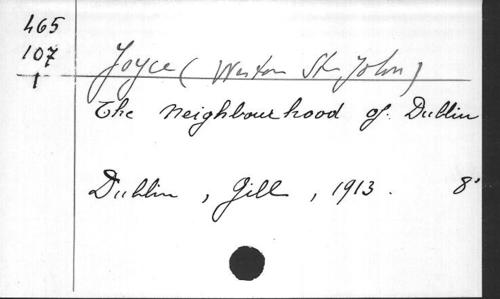 465
107
1
Joyce ( Weston St. John )
The neighbourhood of. Dublin
Dublin , Gill , 1913 . 8°